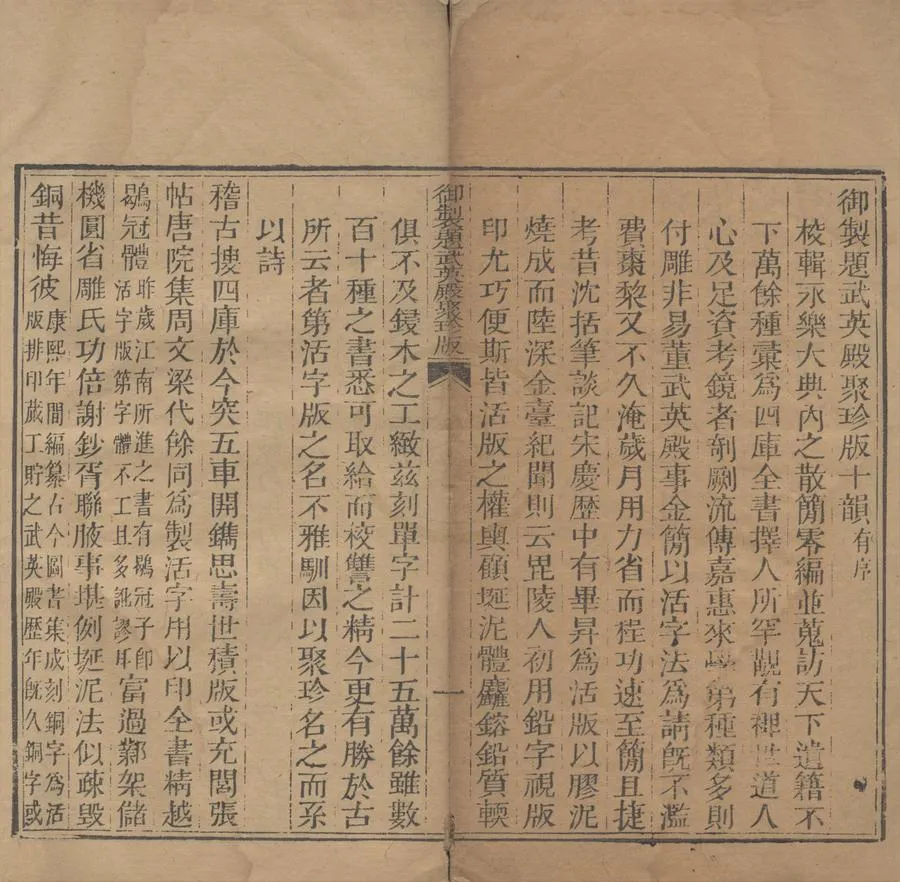 御製題武英殿聚珍版十韻有序
校輯永樂大典內之散簡零編並蒐訪天下遺籍不
下萬餘種彙為四庫全書擇人所罕覯有裨世道人
心及足資考鏡者剞劂流傳嘉惠來學第種類多則
付雕非易董武英殿事金簡以活字法為請既不濫
費棗黎又不久淹歲月用力省而程功速至簡且捷
考昔沈括筆談記宋慶歷中有畢昇為活版以膠泥
燒成而陸深金臺紀聞則云毘陵人初用鉛字視版
印尤巧便斯皆活版之權輿顧埏泥體麤鎔鉛質輭
御製題武英殿聚珍版
一
俱不及鋟木之工緻茲刻單字計二十五萬餘雖數
百十種之書悉可取給而校讐之精今更有勝於古
所云者第活字版之名不雅馴因以聚珍名之而系
以詩
稽古搜四庫於今突五車開鐫思壽世積版或充閭張
帖唐院集周文梁代餘同為製活字用以印全書精越
鶡冠體昨歲江南所進之書有鶡冠子即活字版第字體不工且多訛謬耳富過鄴架儲
機圓省雕氏功倍謝鈔胥聯腋事堪例埏泥法似疎毀
銅昔悔彼康熙年間編纂古今圖書集成刻銅字為活版排印蕆工貯之武英殿歷年既久銅字或